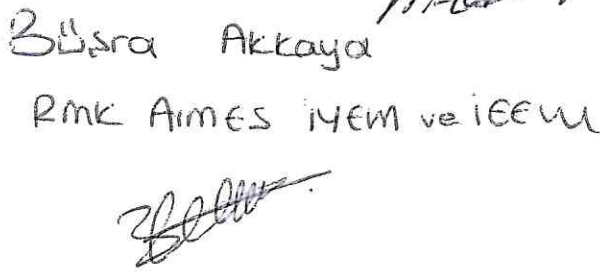 Büşra Akkaya
RMK AIMES İYEM ve İEEM